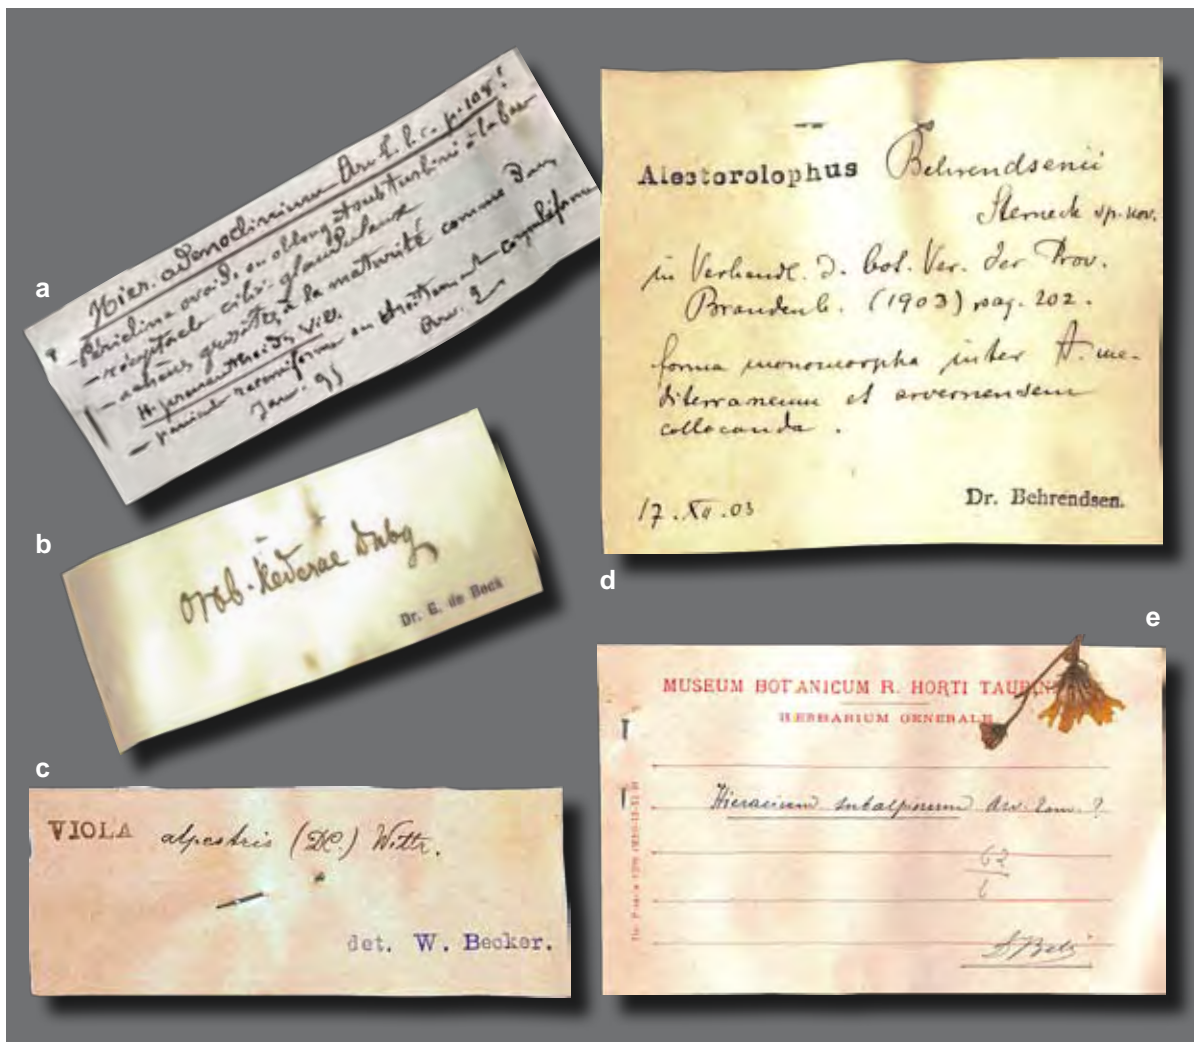 a
Hier. adenoclinium Arv. T. l. c. p. 108!
- Péricline ovoïde ou oblong et subturbiné à la base
- réceptacle cilié-glanduleux
- akènes grisâtres à la maturité comme dans
H. prenanthoides Vill.
- panicule racemiforme ou étroitement corymbiforme
Janv. 95 Arv. T
b
orob. hederae Duby
Dr. G. de Beck
c
VIOLA alpestris (DC.) Wittr.
det. W. Becker.
d
Alectorolophus Behrendsenii
Sterneck sp. nov.
in Verhandl. d. bot. Ver. der Prov.
Brandenb. (1903) pag. 202.
forma monomorpha inter A. me-
diterraneum et arvernensem
collocanda.
17. XII. 03 Dr. Behrendsen.
e
MUSEUM BOTANICUM R. HORTI
HERBARIUM GENERALE
Hieracium subalpinum Arv. Touv. ?
62
6
S Belli